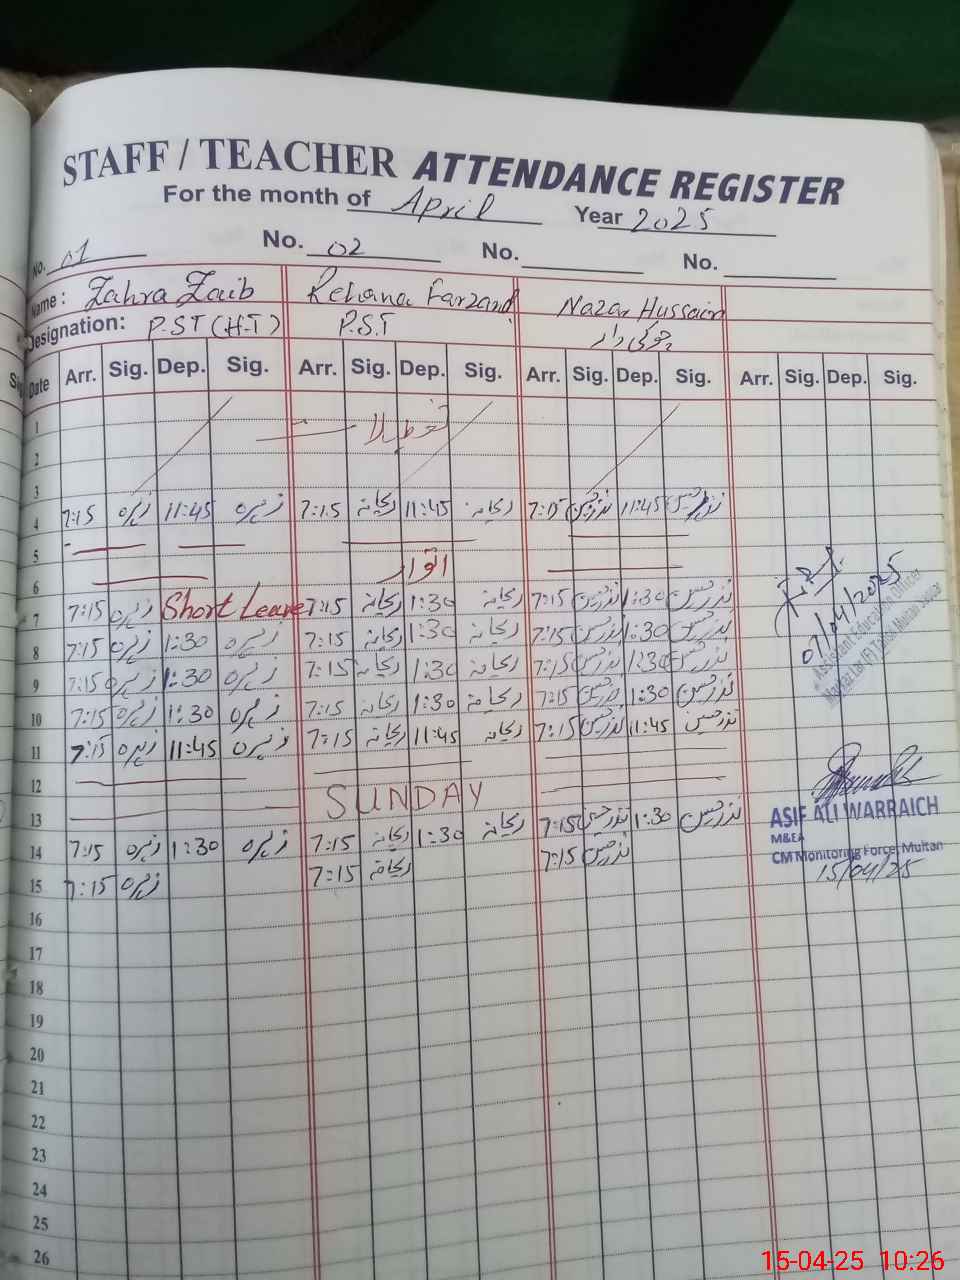 STAFF / TEACHER ATTENDANCE REGISTER
For the month of April Year 2025
No. 01 No. 02 No. No.
Name: Zahra Zaib Rehana Farzand Nazar Hussain
Designation: P.ST (H-T) P.S.T چوکی دار
Date Arr. Sig. Dep. Sig. Arr. Sig. Dep. Sig. Arr. Sig. Dep. Sig. Arr. Sig. Dep. Sig.
1 تعطیلات
2
3
4 7:15 زہرہ 11:45 زہرہ 7:15 ریحانہ 11:45 ریحانہ 7:15 نذر حسین 11:45 نذر حسین
5
6 اتوار
7 7:15 زہرہ Short Leave 7:15 ریحانہ 1:30 ریحانہ 7:15 نذر حسین 1:30 نذر حسین
8 7:15 زہرہ 1:30 زہرہ 7:15 ریحانہ 1:30 ریحانہ 7:15 نذر حسین 1:30 نذر حسین
9 7:15 زہرہ 1:30 زہرہ 7:15 ریحانہ 1:30 ریحانہ 7:15 نذر حسین 1:30 نذر حسین
10 7:15 زہرہ 1:30 زہرہ 7:15 ریحانہ 1:30 ریحانہ 7:15 نذر حسین 1:30 نذر حسین
11 7:15 زہرہ 11:45 زہرہ 7:15 ریحانہ 11:45 ریحانہ 7:15 نذر حسین 11:45 نذر حسین
12
13 SUNDAY
14 7:15 زہرہ 1:30 زہرہ 7:15 ریحانہ 1:30 ریحانہ 7:15 نذر حسین 1:30 نذر حسین
15 7:15 زہرہ 7:15 ریحانہ 7:15 نذر حسین
16
17
18
19
20
21
22
23
24
25
26
07/04/2025
Assistant Education Officer
ASIF ALI WARRAICH
M&EA
CM Monitoring Force, Multan
15/04/25
15-04-25 10:26